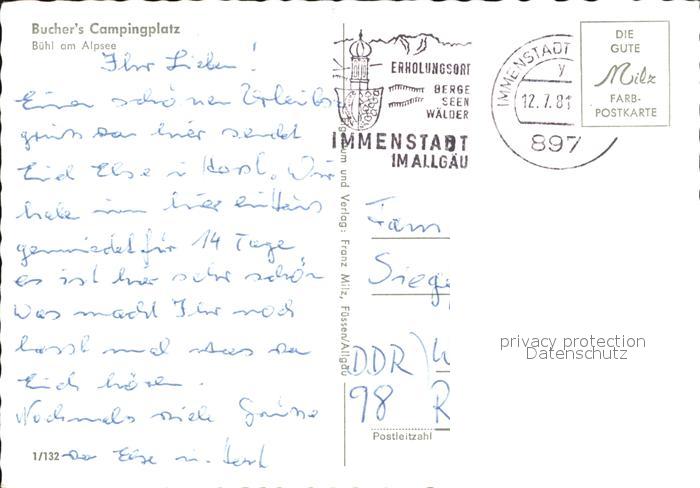 Bucher's Campingplatz
Bühl am Alpsee
Ihr Lieben!
Einen schönen Urlaubs
gruss von hier sendet
Euch Else u. Horst. Wir
haben uns hier ein Haus
gemietet für 14 Tage
es ist hier sehr schön
Was macht Ihr noch
lasst mal was von
Euch hören.
Nochmals viele Grüsse
von Else u. Horst
1/132
und Verlag: Franz Milz, Füssen/Allgäu
ERHOLUNGSORT
BERGE
SEEN
WÄLDER
IMMENSTADT
IM ALLGÄU
IMMENSTADT
y
12.7.81
897
DIE
GUTE
Milz
FARB-
POSTKARTE
Fam
Sieg
DDR
98 R
Postleitzahl
privacy protection
Datenschutz